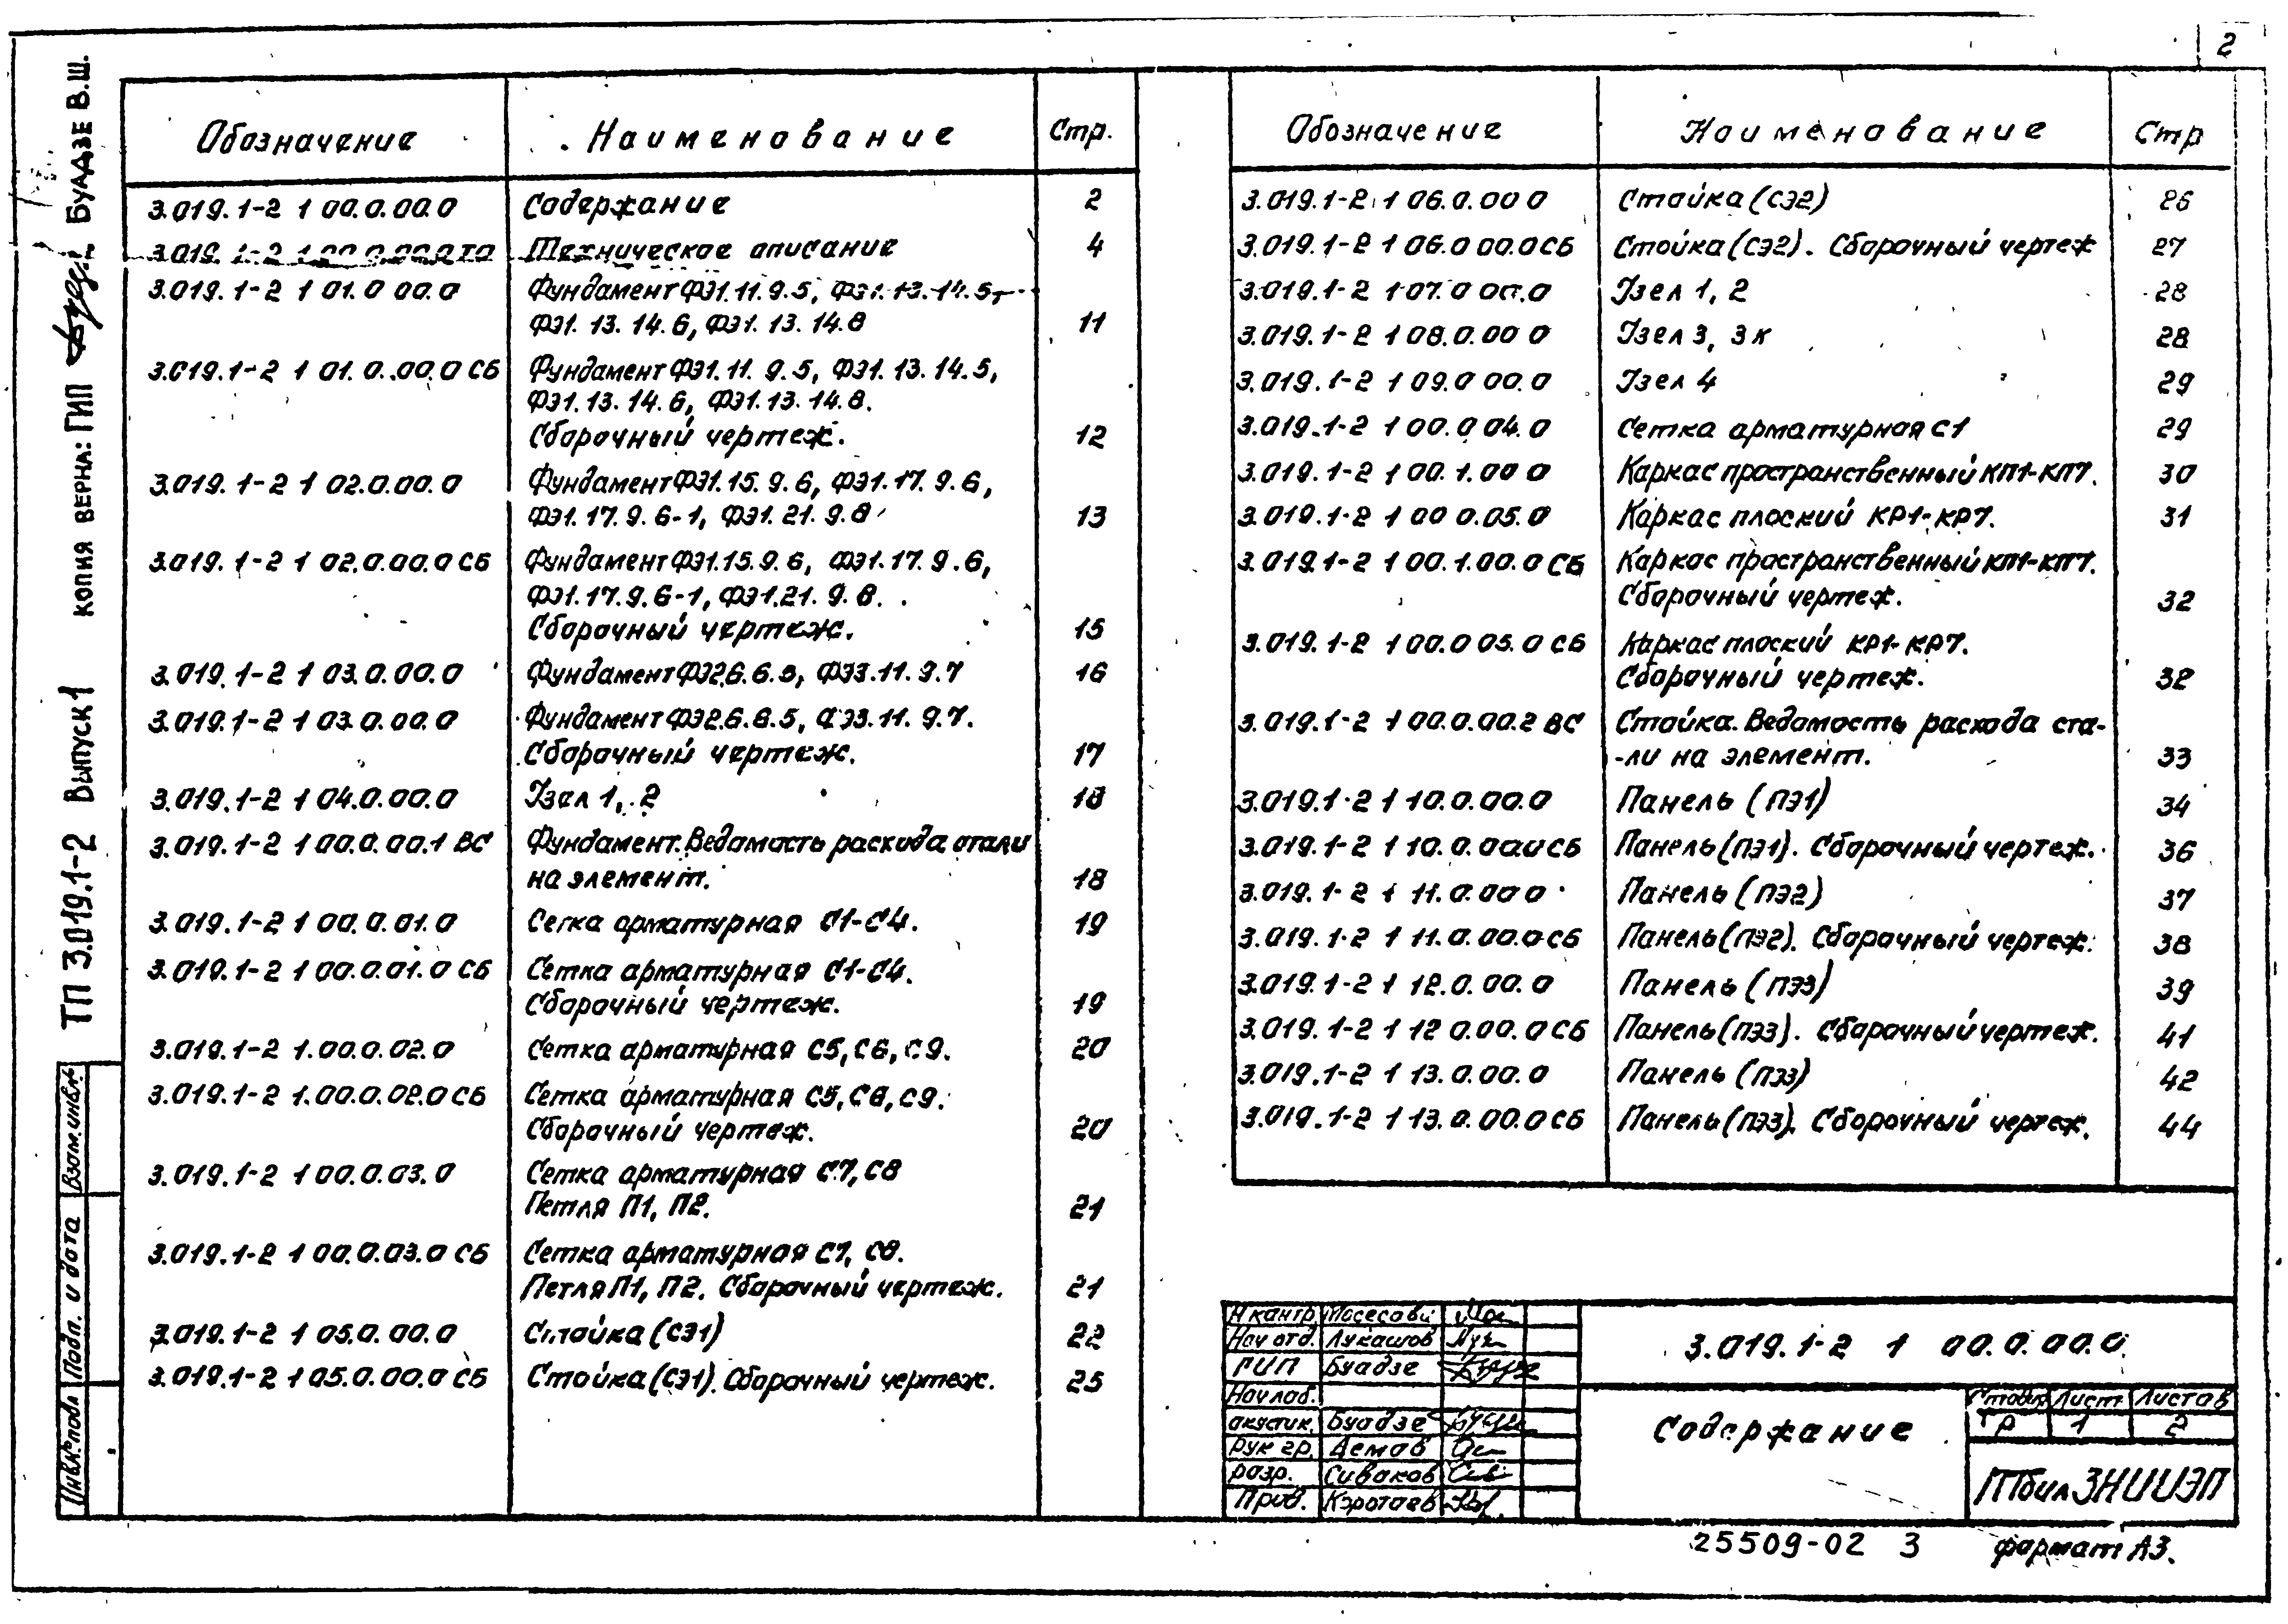 2
ТП 3.019.1-2 Выпуск 1 КОПИЯ ВЕРНА: ГИП БУАДЗЕ В.Ш.
Обозначение Наименование Стр.
3.019.1-2 1 00.0.00.0 Содержание 2
3.019.1-2 1 00.0.00.0 ТО Техническое описание 4
3.019.1-2 1 01.0 00.0 Фундамент ФЭ1.11.9.5, ФЭ1.13.14.5,
ФЭ1.13.14.6, ФЭ1.13.14.8 11
3.019.1-2 1 01.0.00.0 СБ Фундамент ФЭ1.11.9.5, ФЭ1.13.14.5,
ФЭ1.13.14.6, ФЭ1.13.14.8.
Сборочный чертеж. 12
3.019.1-2 1 02.0.00.0 Фундамент ФЭ1.15.9.6, ФЭ1.17.9.6,
ФЭ1.17.9.6-1, ФЭ1.21.9.8 13
3.019.1-2 1 02.0.00.0 СБ Фундамент ФЭ1.15.9.6, ФЭ1.17.9.6,
ФЭ1.17.9.6-1, ФЭ1.21.9.8.
Сборочный чертеж. 15
3.019.1-2 1 03.0.00.0 Фундамент ФЭ2.6.6.5, ФЭ3.11.9.7 16
3.019.1-2 1 03.0.00.0 Фундамент ФЭ2.6.6.5, ФЭ3.11.9.7.
Сборочный чертеж. 17
3.019.1-2 1 04.0.00.0 Узел 1, 2 18
3.019.1-2 1 00.0.00.1 ВС Фундамент. Ведомость расхода стали
на элемент. 18
3.019.1-2 1 00.0.01.0 Сетка арматурная С1-С4. 19
3.019.1-2 1 00.0.01.0 СБ Сетка арматурная С1-С4.
Сборочный чертеж. 19
3.019.1-2 1.00.0.02.0 Сетка арматурная С5, С6, С9. 20
3.019.1-2 1.00.0.02.0 СБ Сетка арматурная С5, С6, С9.
Сборочный чертеж. 20
3.019.1-2 1 00.0.03.0 Сетка арматурная С7, С8
Петля П1, П2. 21
3.019.1-2 1 00.0.03.0 СБ Сетка арматурная С7, С8.
Петля П1, П2. Сборочный чертеж. 21
3.019.1-2 1 05.0.00.0 Стойка (СЭ1) 22
3.019.1-2 1 05.0.00.0 СБ Стойка (СЭ1). Сборочный чертеж. 25
Обозначение Наименование Стр
3.019.1-2 1 06.0.00 0 Стойка (СЭ2) 26
3.019.1-2 1 06.0 00.0 СБ Стойка (СЭ2). Сборочный чертеж 27
3.019.1-2 1 07.0 00.0 Узел 1, 2 28
3.019.1-2 1 08.0.00 0 Узел 3, 3к 28
3.019.1-2 1 09.0 00.0 Узел 4 29
3.019.1-2 1 00.0 04.0 Сетка арматурная С1 29
3.019.1-2 1 00.1.00 0 Каркас пространственный КП1-КП7. 30
3.019.1-2 1 00 0.05.0 Каркас плоский КР1-КР7. 31
3.019.1-2 1 00.1.00.0 СБ Каркас пространственный КП1-КП7.
Сборочный чертеж. 32
3.019.1-2 1 00.0 05.0 СБ Каркас плоский КР1-КР7.
Сборочный чертеж. 32
3.019.1-2 1 00.0.00.2 ВС Стойка. Ведомость расхода ста-
-ли на элемент. 33
3.019.1-2 1 10.0.00.0 Панель (ПЭ1) 34
3.019.1-2 1 10.0.00.0 СБ Панель (ПЭ1). Сборочный чертеж. 36
3.019.1-2 1 11.0.00 0 Панель (ПЭ2) 37
3.019.1-2 1 11.0.00.0 СБ Панель (ПЭ2). Сборочный чертеж. 38
3.019.1-2 1 12.0.00.0 Панель (ПЭ3) 39
3.019.1-2 1 12 0.00.0 СБ Панель (ПЭ3). Сборочный чертеж. 41
3.019.1-2 1 13.0.00.0 Панель (ПЭ3) 42
3.019.1-2 1 13.0.00.0 СБ Панель (ПЭ3). Сборочный чертеж. 44
Взам.инв.№
Подп. и дата
Инв.№подл
Н контр
Нач отд. Лукашов
ГИП Буадзе
Нач лаб.
акустик. Буадзе
Рук гр. Демов
разр. Сиваков
Пров. Коротаев
3.019.1-2 1 00.0.00.0
Содержание
Стадия Лист Листов
Р 1 2
ТбилЗНИИЭП
25509-02 3 формат А3.